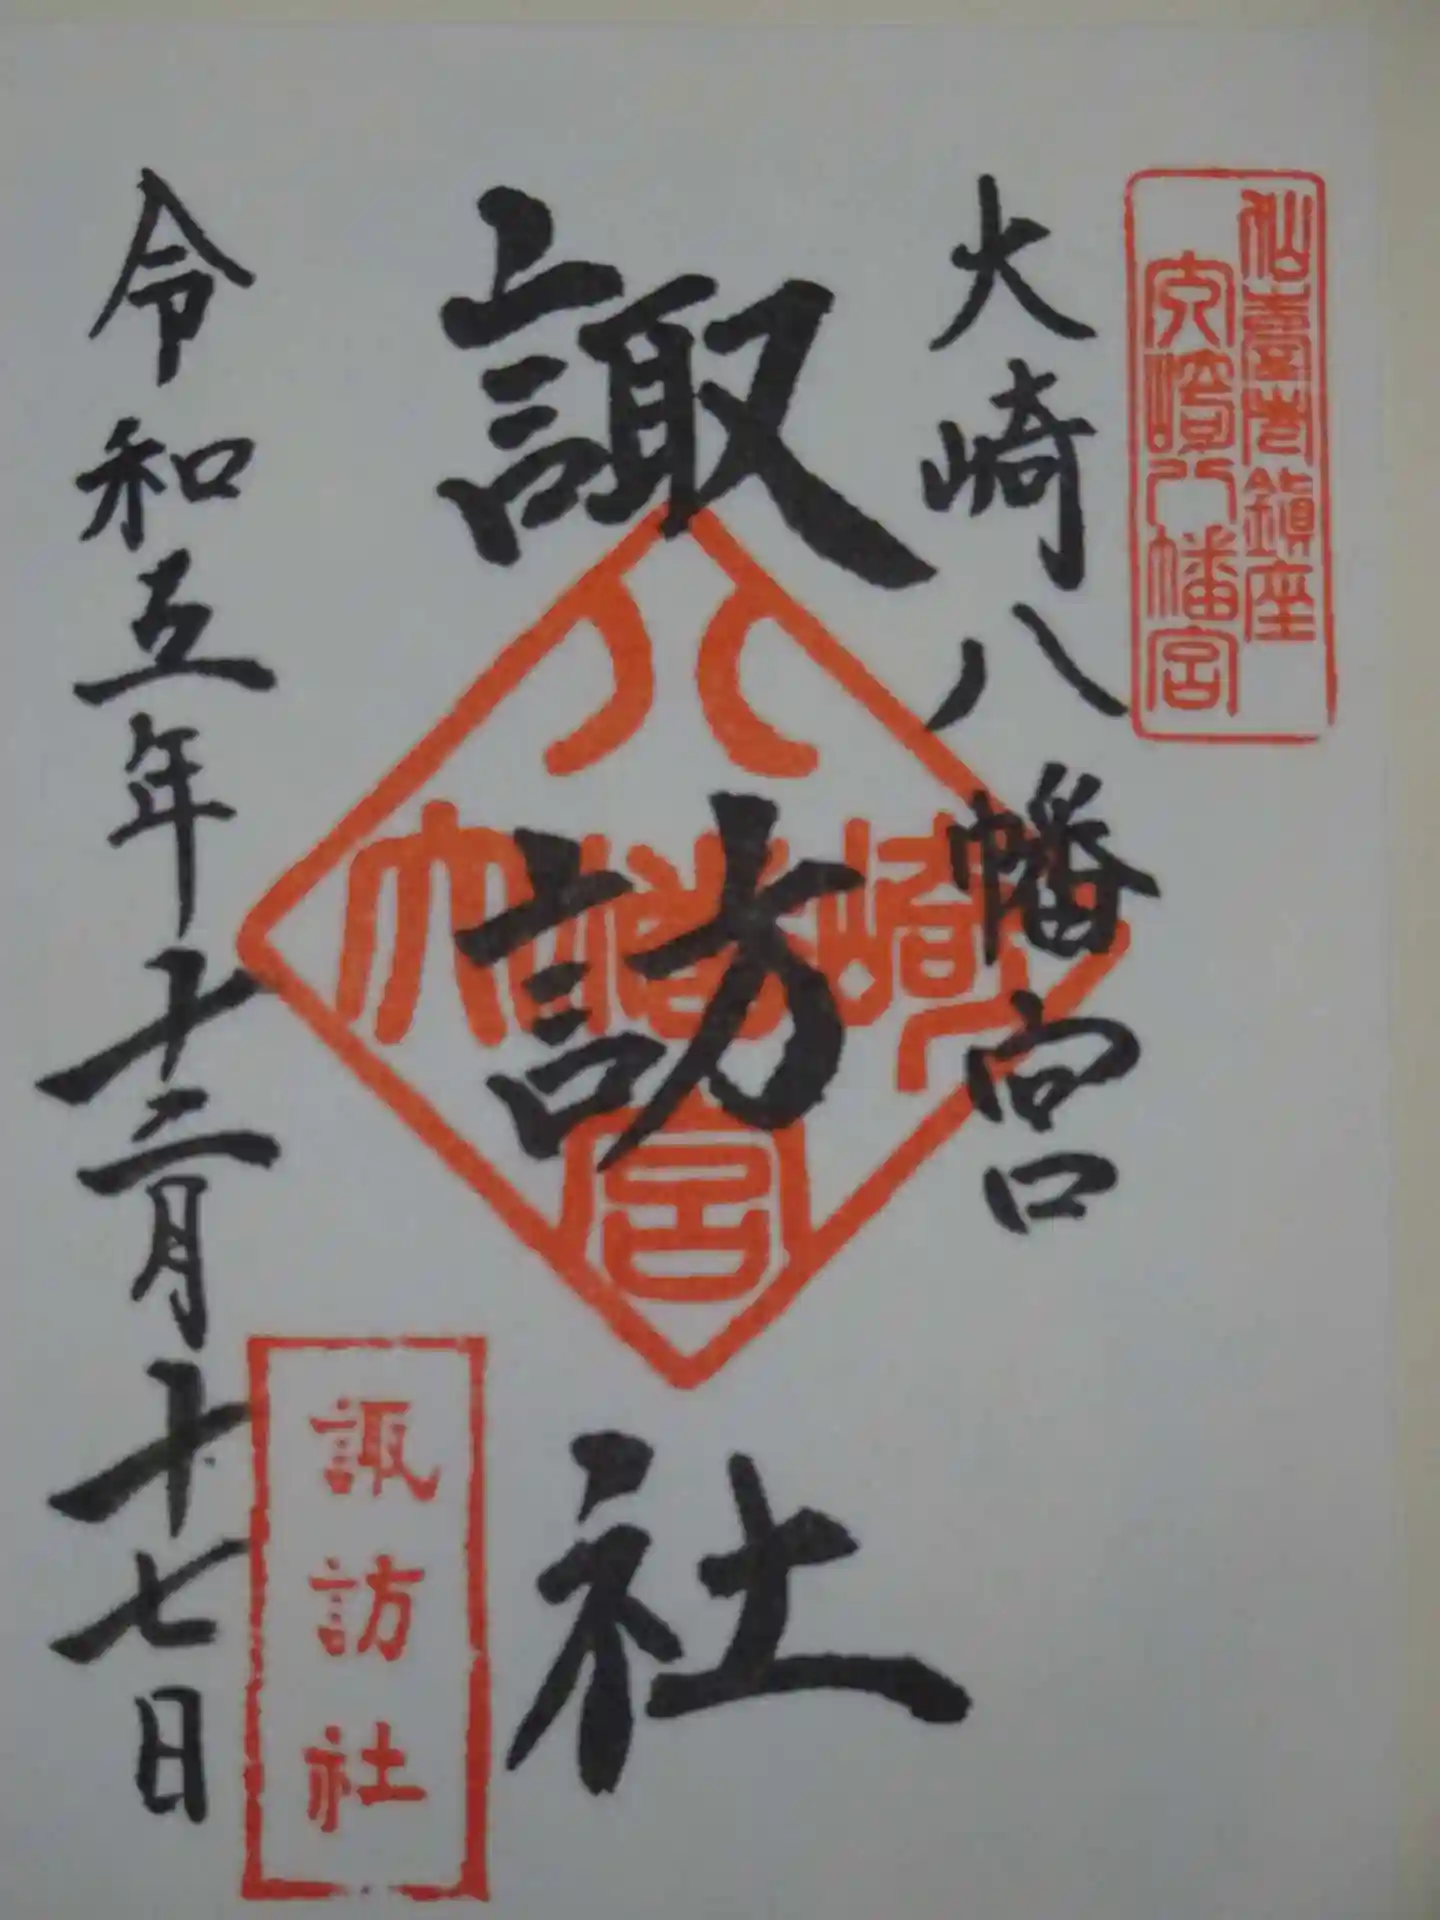 仙臺总鎮座
大崎八幡宮
大崎八幡宮
諏訪社
八
大幡崎
宮
諏訪社
令和五年十二月十七日